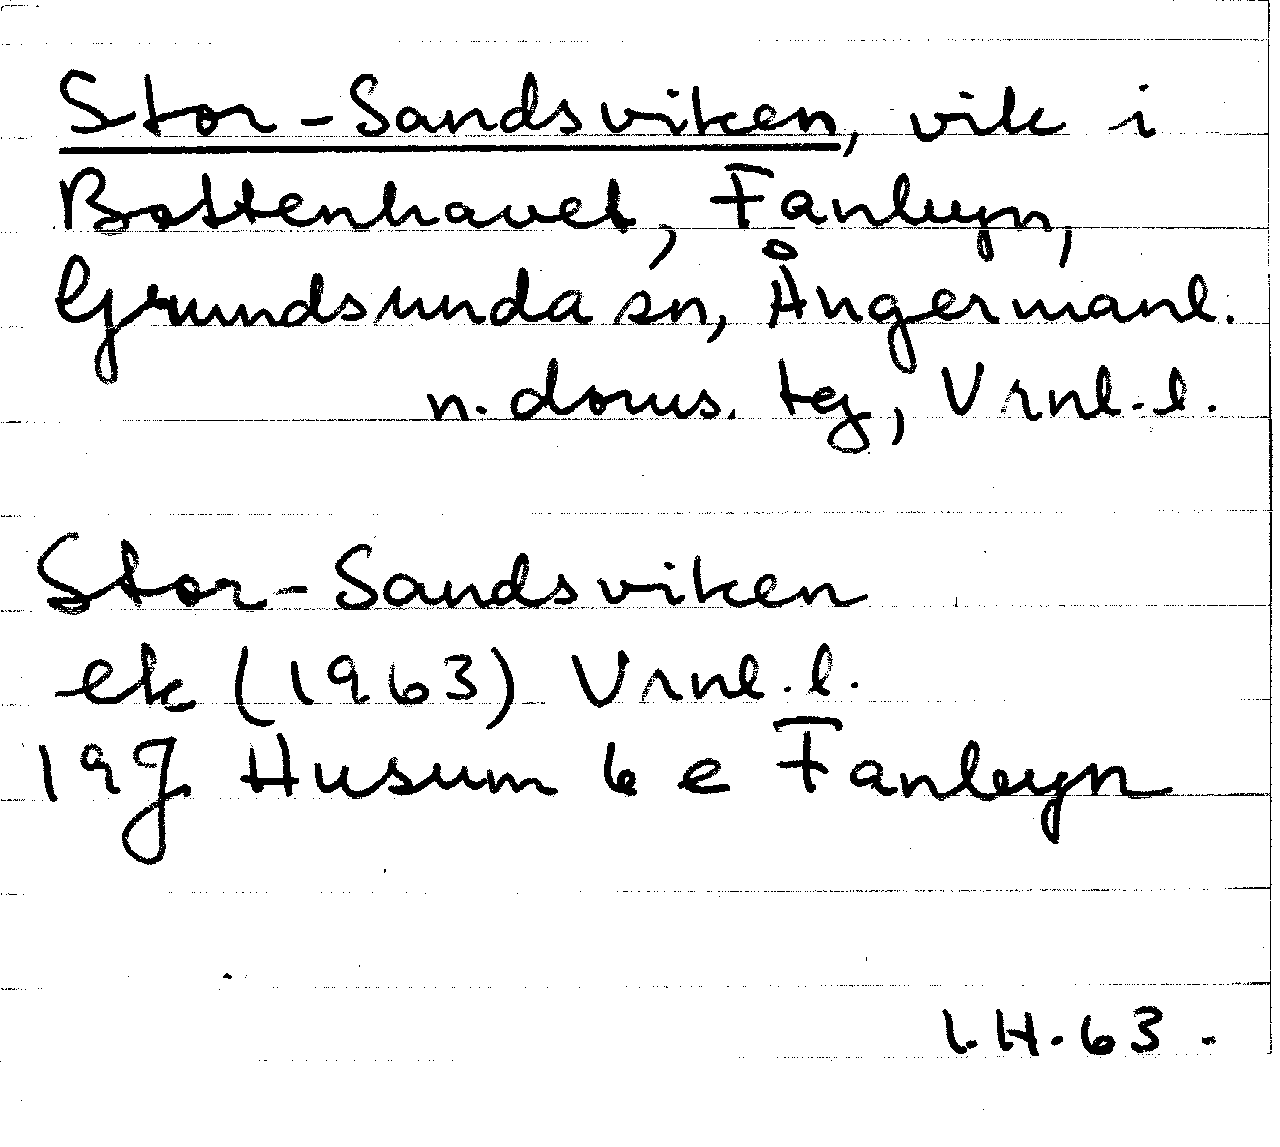 Stor-Sandsviken, vik i
Bottenhavet, Fanbyn,
Grundsunda sn, Ångermanl.
n. doms. tg, Vrnl.l.
Stor-Sandsviken
ek (1963) Vrnl.l.
19J Husum 6 e Fanbyn
I.H.63.